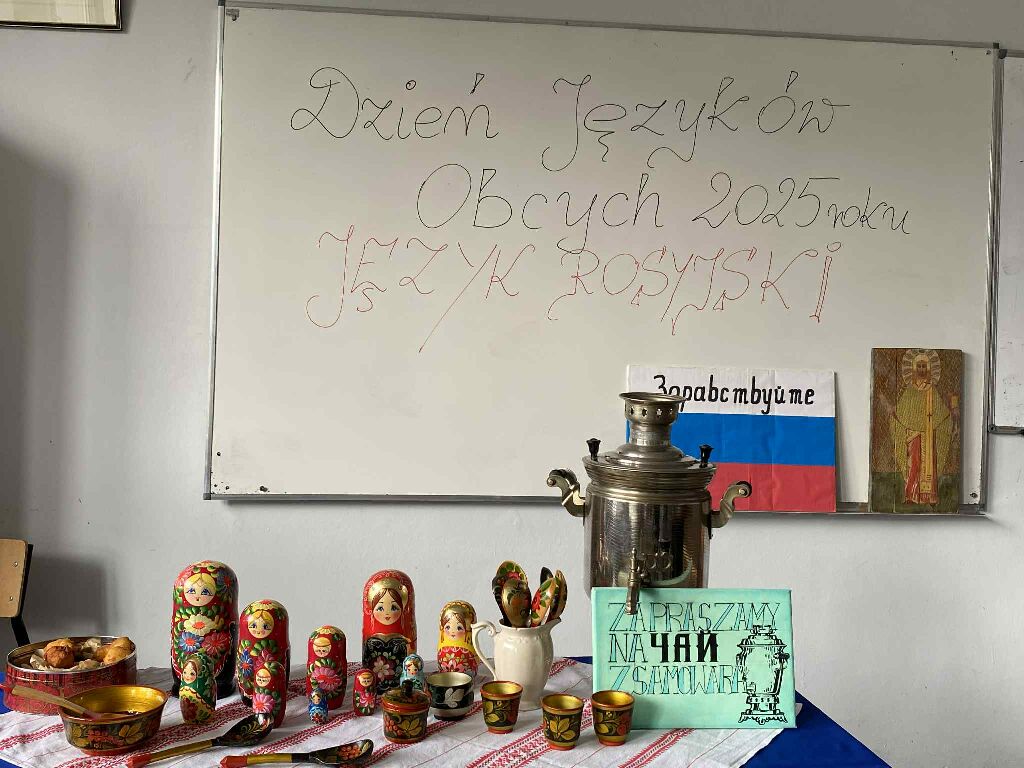 Dzień Języków
Obcych 2025 roku
JĘZYK ROSYJSKI
Здравствуйте
ZAPRASZAMY
NA ЧАЙ
Z SAMOWARA